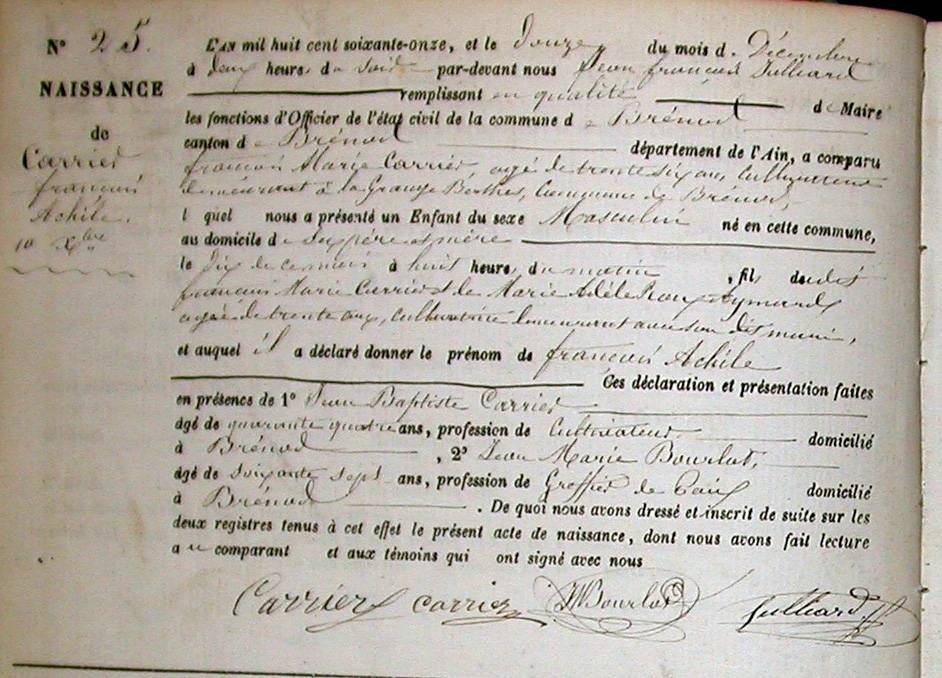 N° 25.
NAISSANCE
de
Carrier
françois
Achile.
10 Xbre
L'AN mil huit cent soixante-onze, et le douze du mois de Décembre
à deux heures du soir par-devant nous Jean françois Julliard
remplissant en qualité de Maire
les fonctions d'Officier de l'état civil de la commune de Brénod
canton de Brénod département de l'Ain, a comparu
françois Marie Carrier, agé de trente six ans, Cultivateur
demeurant à la Grange Berthet, Commune de Brénod,
lequel nous a présenté un Enfant du sexe Masculin né en cette commune,
au domicile de ses père et mère
le dix de ce mois à huit heures du matin, fils dudit
françois Marie Carrier et de Marie Adèle Roux Aymard
agée de trente ans, cultivatrice demeurant avec son dit mari,
et auquel il a déclaré donner le prénom de françois Achile
Ces déclaration et présentation faites
en présence de 1° Jean Baptiste Carrier
âgé de quarante quatre ans, profession de Cultivateur domicilié
à Brénod, 2° Jean Marie Bourlot,
âgé de soixante sept ans, profession de Greffier de Paix domicilié
à Brénod. De quoi nous avons dressé et inscrit de suite sur les
deux registres tenus à cet effet le présent acte de naissance, dont nous avons fait lecture
au comparant et aux témoins qui ont signé avec nous
Carrier carrier JMBourlot Julliard